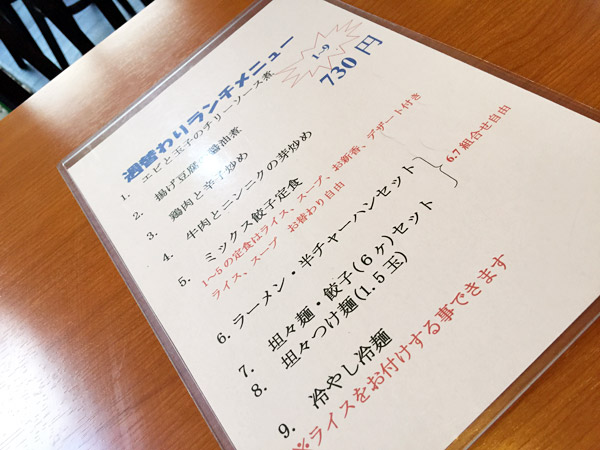 週替わりランチメニュー
1~9
730 円
1. エビと玉子のチリーソース煮
2. 揚げ豆腐 醤油煮
3. 鶏肉と辛子炒め
4. 牛肉とニンニクの芽炒め
5. ミックス餃子定食
1~5の定食はライス、スープ、お新香、デザート付き
ライス、スープ お替わり自由
6. ラーメン・半チャーハンセット
7. 坦々麺・餃子(6ヶ)セット
6.7 組合せ自由
8. 坦々つけ麺(1.5玉)
9. 冷やし冷麺
※ライスをお付けする事できます